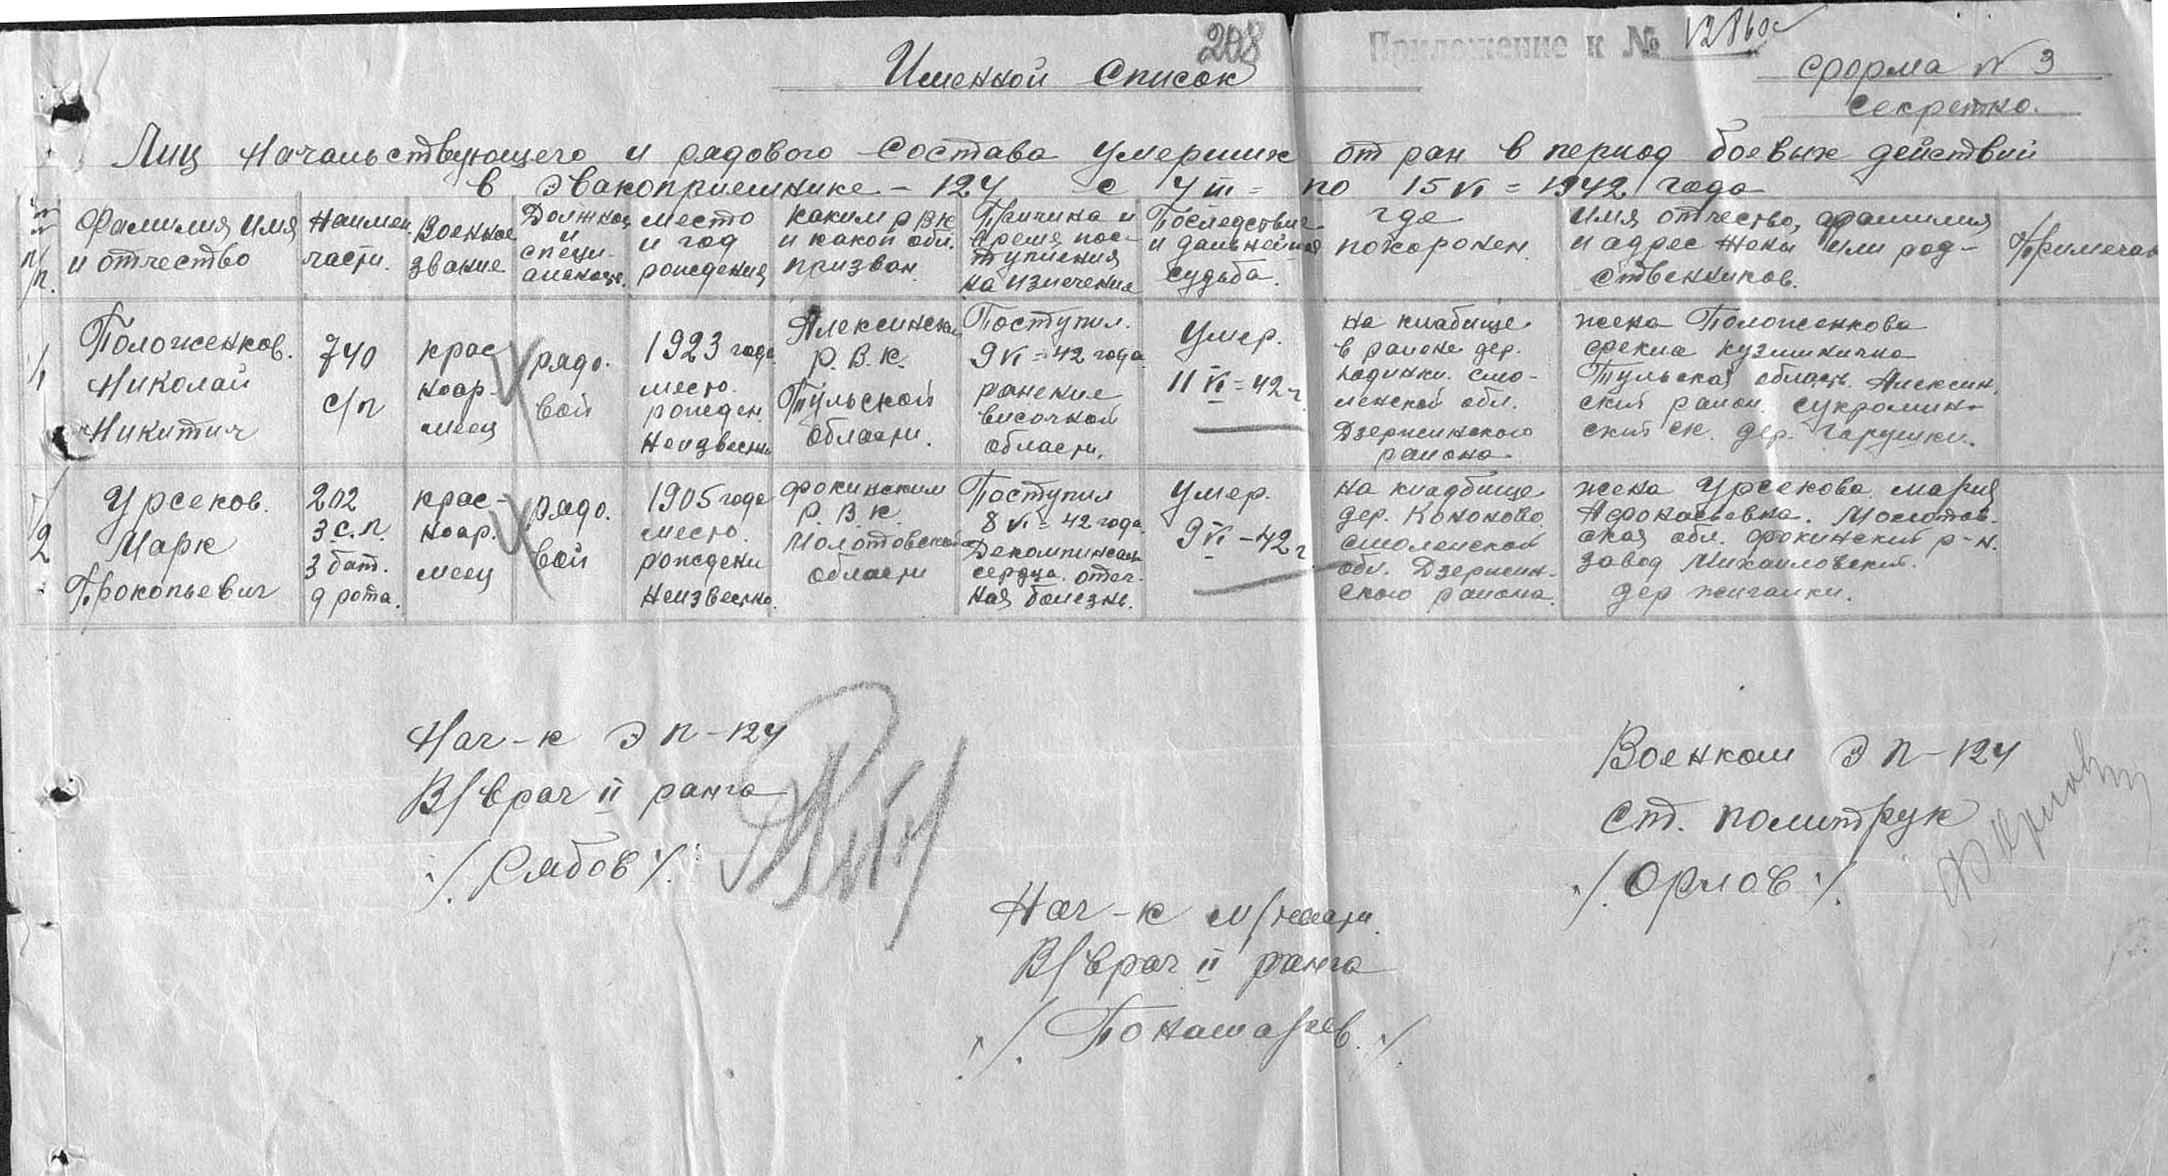 208
Приложение к № 12860с
Именной Список
Форма № 3
Секретно.
Лиц Начальствующего и рядового Состава Умерших от ран в период боевых действий
в Эвакоприемнике – 124 с по 15 VI = 1942 года
№№ п/п.
Фамилия, Имя
и отчество
Наимен.
части.
Военное
звание
Должнос.
и
специ-
альность.
место
и год
рождения
каким Р.В.К
и какой обл.
призван
Причина и
время пос-
тупления
на излечение
Последствие
и дальнейшая
судьба.
где
похоронен.
Имя отчество, фамилия
и адрес жены или род-
ственников.
Примечан
1
Положенков.
Николай
Никитич
740
с/п
крас
ноар-
меец
рядо.
вой
1923 года
место.
рожден.
Неизвестно
Алексинским
Р.В.К.
Тульской
области.
Поступил.
9 VI = 42 года
ранение
височной
области.
Умер.
11 VI = 42 г.
на кладбище
в районе дер.
смо-
ленской обл.
Дзержинского
района
жена Положенкова
фекла кузминична
Тульская область. Алексин.
ский район.
ский с/с. дер.
2
Урсеков.
Марк
Прокопьевич
202
З.С.П.
3 бат.
9 рота.
крас-
ноар.
меец
рядо.
вой
1905 года
место.
рождени
Неизвестно.
фокинским
Р.В.К.
Молотовской
области
Поступил
8 VI = 42 года.
Декомпинсац
сердца. отеч.
ная болезнь.
Умер.
9 VI – 42 г
на кладбище
дер. Кононово
смоленской
обл. Дзержин.
ского района.
жена Урсекова. мария
Афонасьевна. Молотов.
ская обл. фокинский р-н.
завод Михайловский.
дер жигалки.
Нач-к ЭП-124
В/врач II ранга
/.Рябов./.
Нач-к м/части.
В/врач II ранга
Военком ЭП-124
Ст. политрук
/.Орлов./.